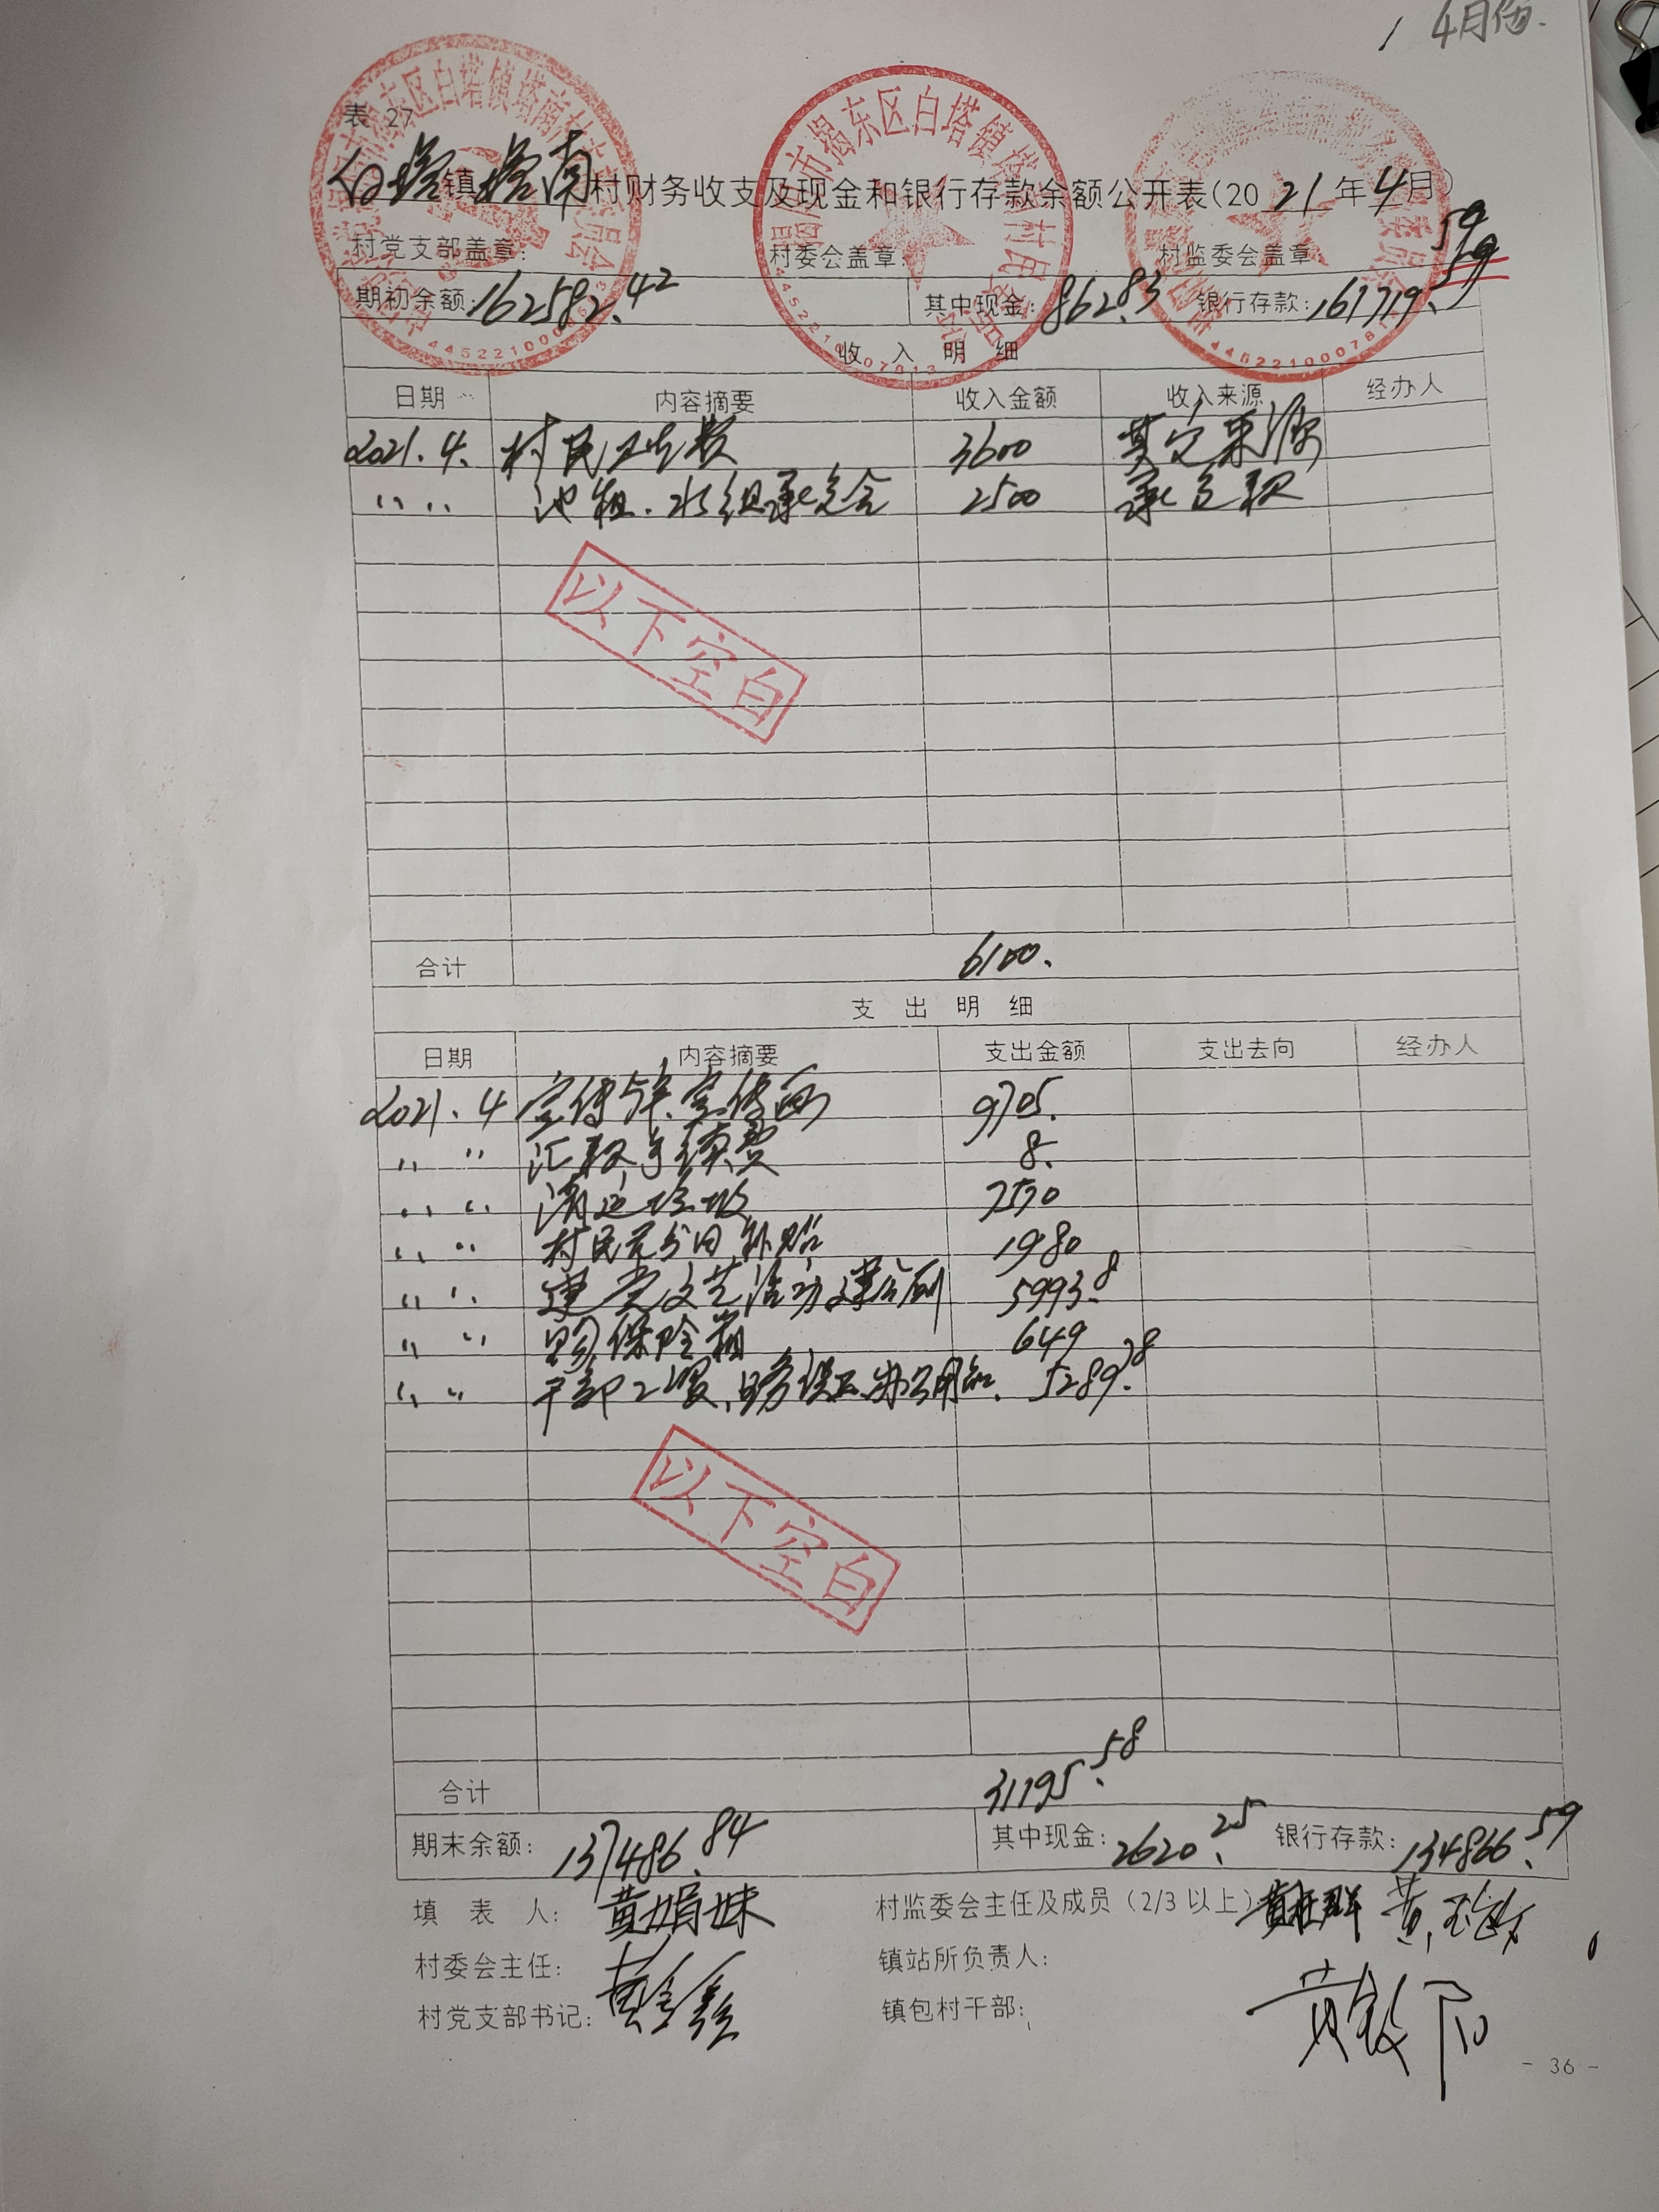 1 4月份.
表 27
白塔镇塔南村财务收支及现金和银行存款余额公开表(2021年4月)
村党支部盖章: 村委会盖章: 村监委会盖章:
59
期初余额:162582.42 其中现金:862.83 银行存款:161719.59
收入明细
日期 内容摘要 收入金额 收入来源 经办人
2021.4. 村民卫生费 3600 其它来源
〃 〃 池租. 承包金 2500 承包款
以下空白
合计 6100.
支出明细
日期 内容摘要 支出金额 支出去向 经办人
2021.4 宣传栏.宣传画 9705.
〃 〃 汇款手续费 8.
〃 〃 清运垃圾 7570
〃 〃 村民 补贴 1980
〃 〃 建党文艺活动 5993.8
〃 〃 购保险箱 649
〃 〃 干部 误工.办公用品. 5289.78
以下空白
合计 31195.58
期末余额: 137486.84 其中现金:2620.25 银行存款:134866.59
填表人: 黄娟妹 村监委会主任及成员(2/3以上)
村委会主任: 镇站所负责人:
村党支部书记: 黄鑫鑫 镇包村干部:
- 36 -